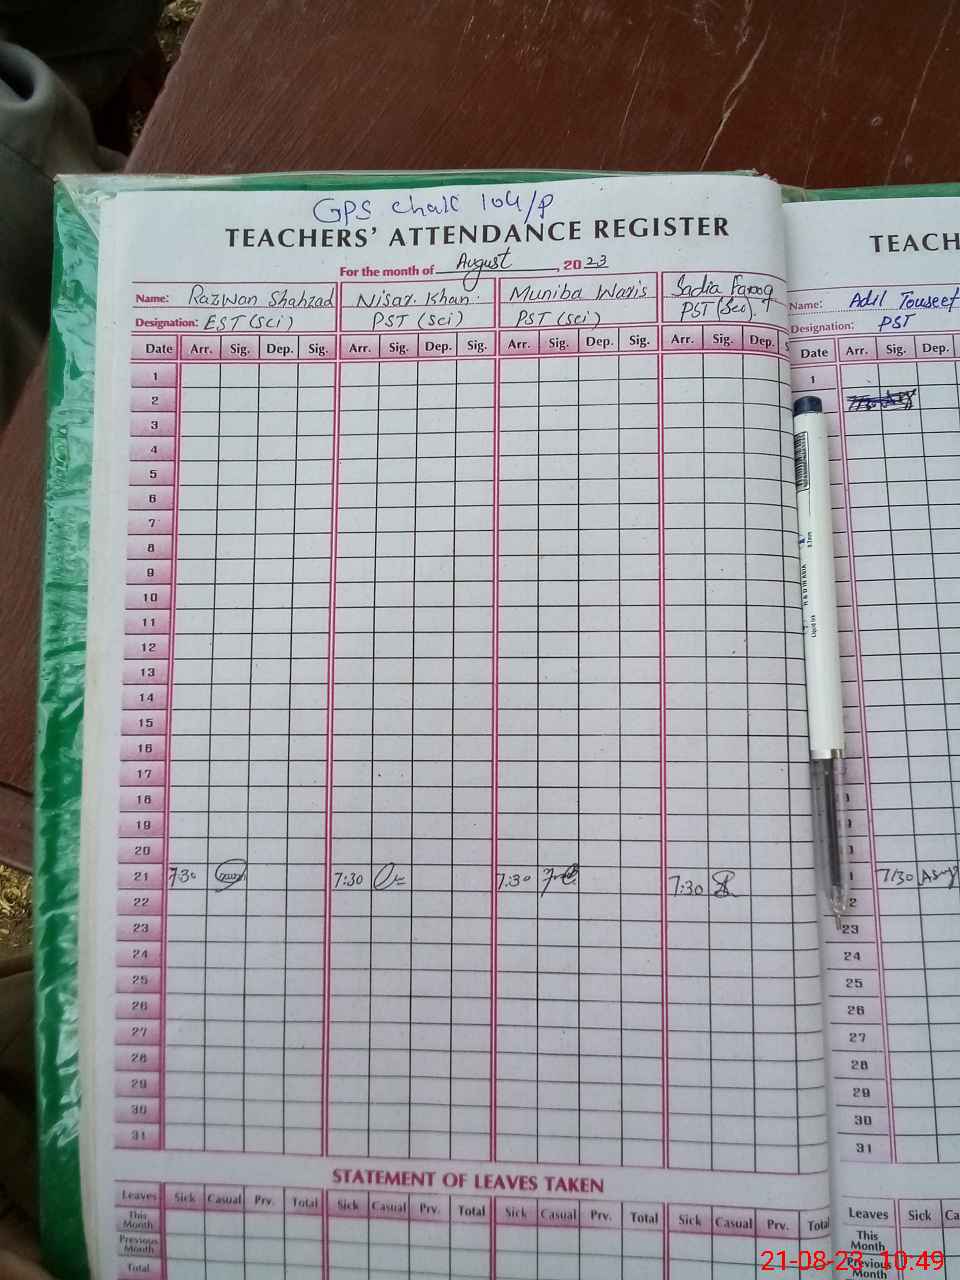 GPS chak 104/P
TEACHERS' ATTENDANCE REGISTER
For the month of August, 2023
Name: Razwan Shahzad Nisar. Khan. Muniba Waris Sadia Farooq
Designation: EST (Sci) PST (Sci) PST (sci) PST (Sci).
Date Arr. Sig. Dep. Sig. Arr. Sig. Dep. Sig. Arr. Sig. Dep. Sig. Arr. Sig. Dep. S
1
2
3
4
5
6
7
8
9
10
11
12
13
14
15
16
17
18
19
20
21 7:30 7:30 7:30 7:30
22
23
24
25
26
27
28
29
30
31
STATEMENT OF LEAVES TAKEN
Leaves Sick Casual Prv. Total Sick Casual Prv. Total Sick Casual Prv. Total Sick Casual Prv. Total
This Month
Previous Month
Total
TEACH
Name: Adil Touseef
Designation: PST
Date Arr. Sig. Dep.
1
7/30
2
23
24
25
26
27
28
29
30
31
Leaves Sick Ca
This Month
Previous Month
21-08-23 10:49